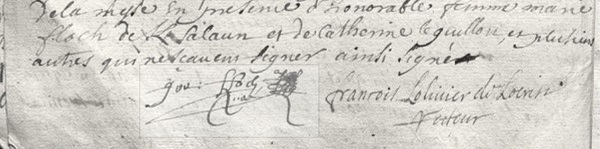 De la messe En presence d'honorable femme marie
floch de K/salaun et de Catherine le guillou, et plusieurs
autres qui ne scavent signer ainsi signé
gou: floch
francois Lolivier de
recteur